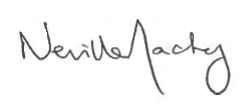 Neville Mackay